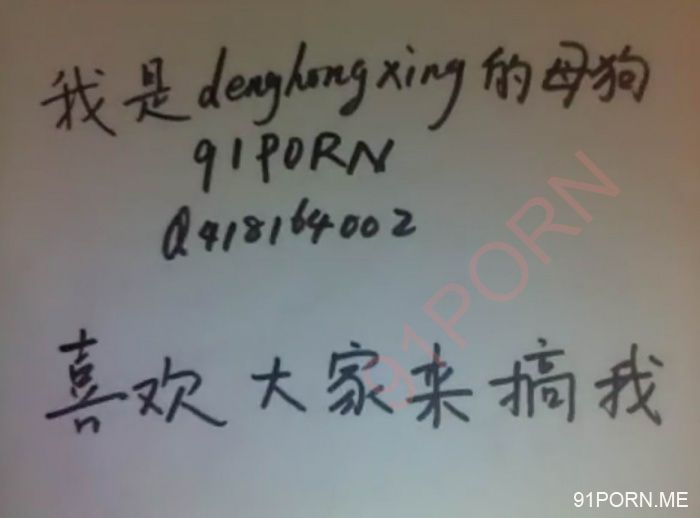 我是denghongxing的母狗
91PORN
Q418164002
喜欢大家来搞我
91PORN
91PORN.ME